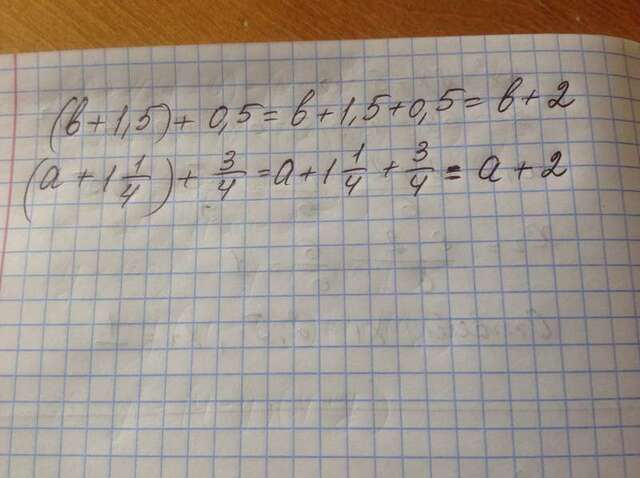 (в + 1,5) + 0,5 = в + 1,5 + 0,5 = в + 2
(a + 1 1/4) + 3/4 = a + 1 1/4 + 3/4 = a + 2